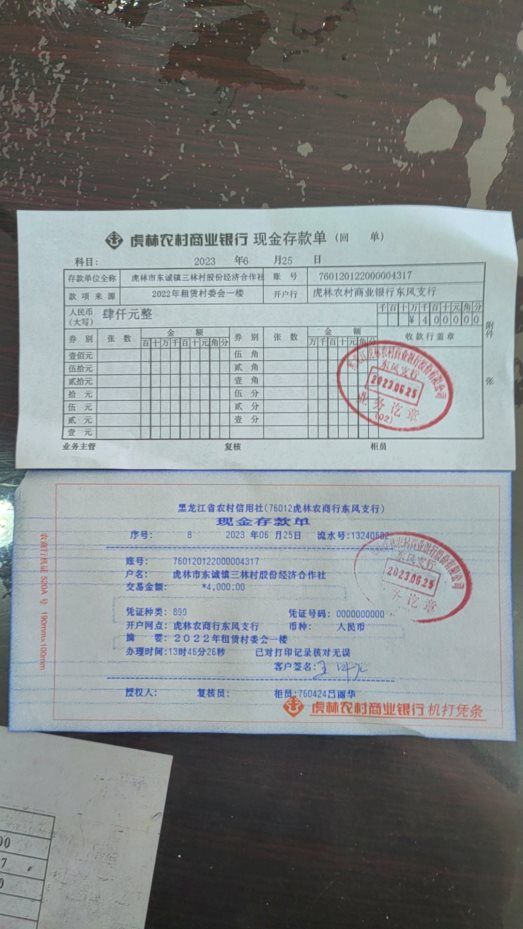 虎林农村商业银行 现金存款单 (回 单)
科目: 2023 年6 月25 日
存款单位全称 虎林市东诚镇三林村股份经济合作社 账 号 760120122000004317
款项来源 2022年租赁村委会一楼 开户行 虎林农村商业银行东风支行
人民币(大写) 肆仟元整 千百十万千百十元角分
¥400000
附件 张
券别 张数 金额 券别 张数 金额 收款行盖章
百十万千百十元角分 万千百十元角分
壹佰元 伍角
伍拾元 贰角
贰拾元 壹角
拾元 伍分
伍元 贰分
贰元 壹分
壹元
东风支行
2023.06.25
业务讫章
(02)
业务主管 复核 柜员
黑龙江省农村信用社(76012虎林农商行东风支行)
现金存款单
序号: 8 2023 年06 月25日 流水号:13240602
账号: 760120122000004317
户名: 虎林市东诚镇三林村股份经济合作社
交易金额: *4,000.00
凭证种类:899 凭证号码:0000000000
开户网点:虎林农商行东风支行 币种: 人民币
摘 要:2022年租赁村委会一楼
办理时间:13时46分26秒 已对打印记录核对无误
客户签名:
授权人: 复核员: 柜员:760424吕丽华
虎林农村商业银行 机打凭条
东风支行
2023.06.25
业务讫章
农商行机证 520A 号 190mm×100mm
00
7
0